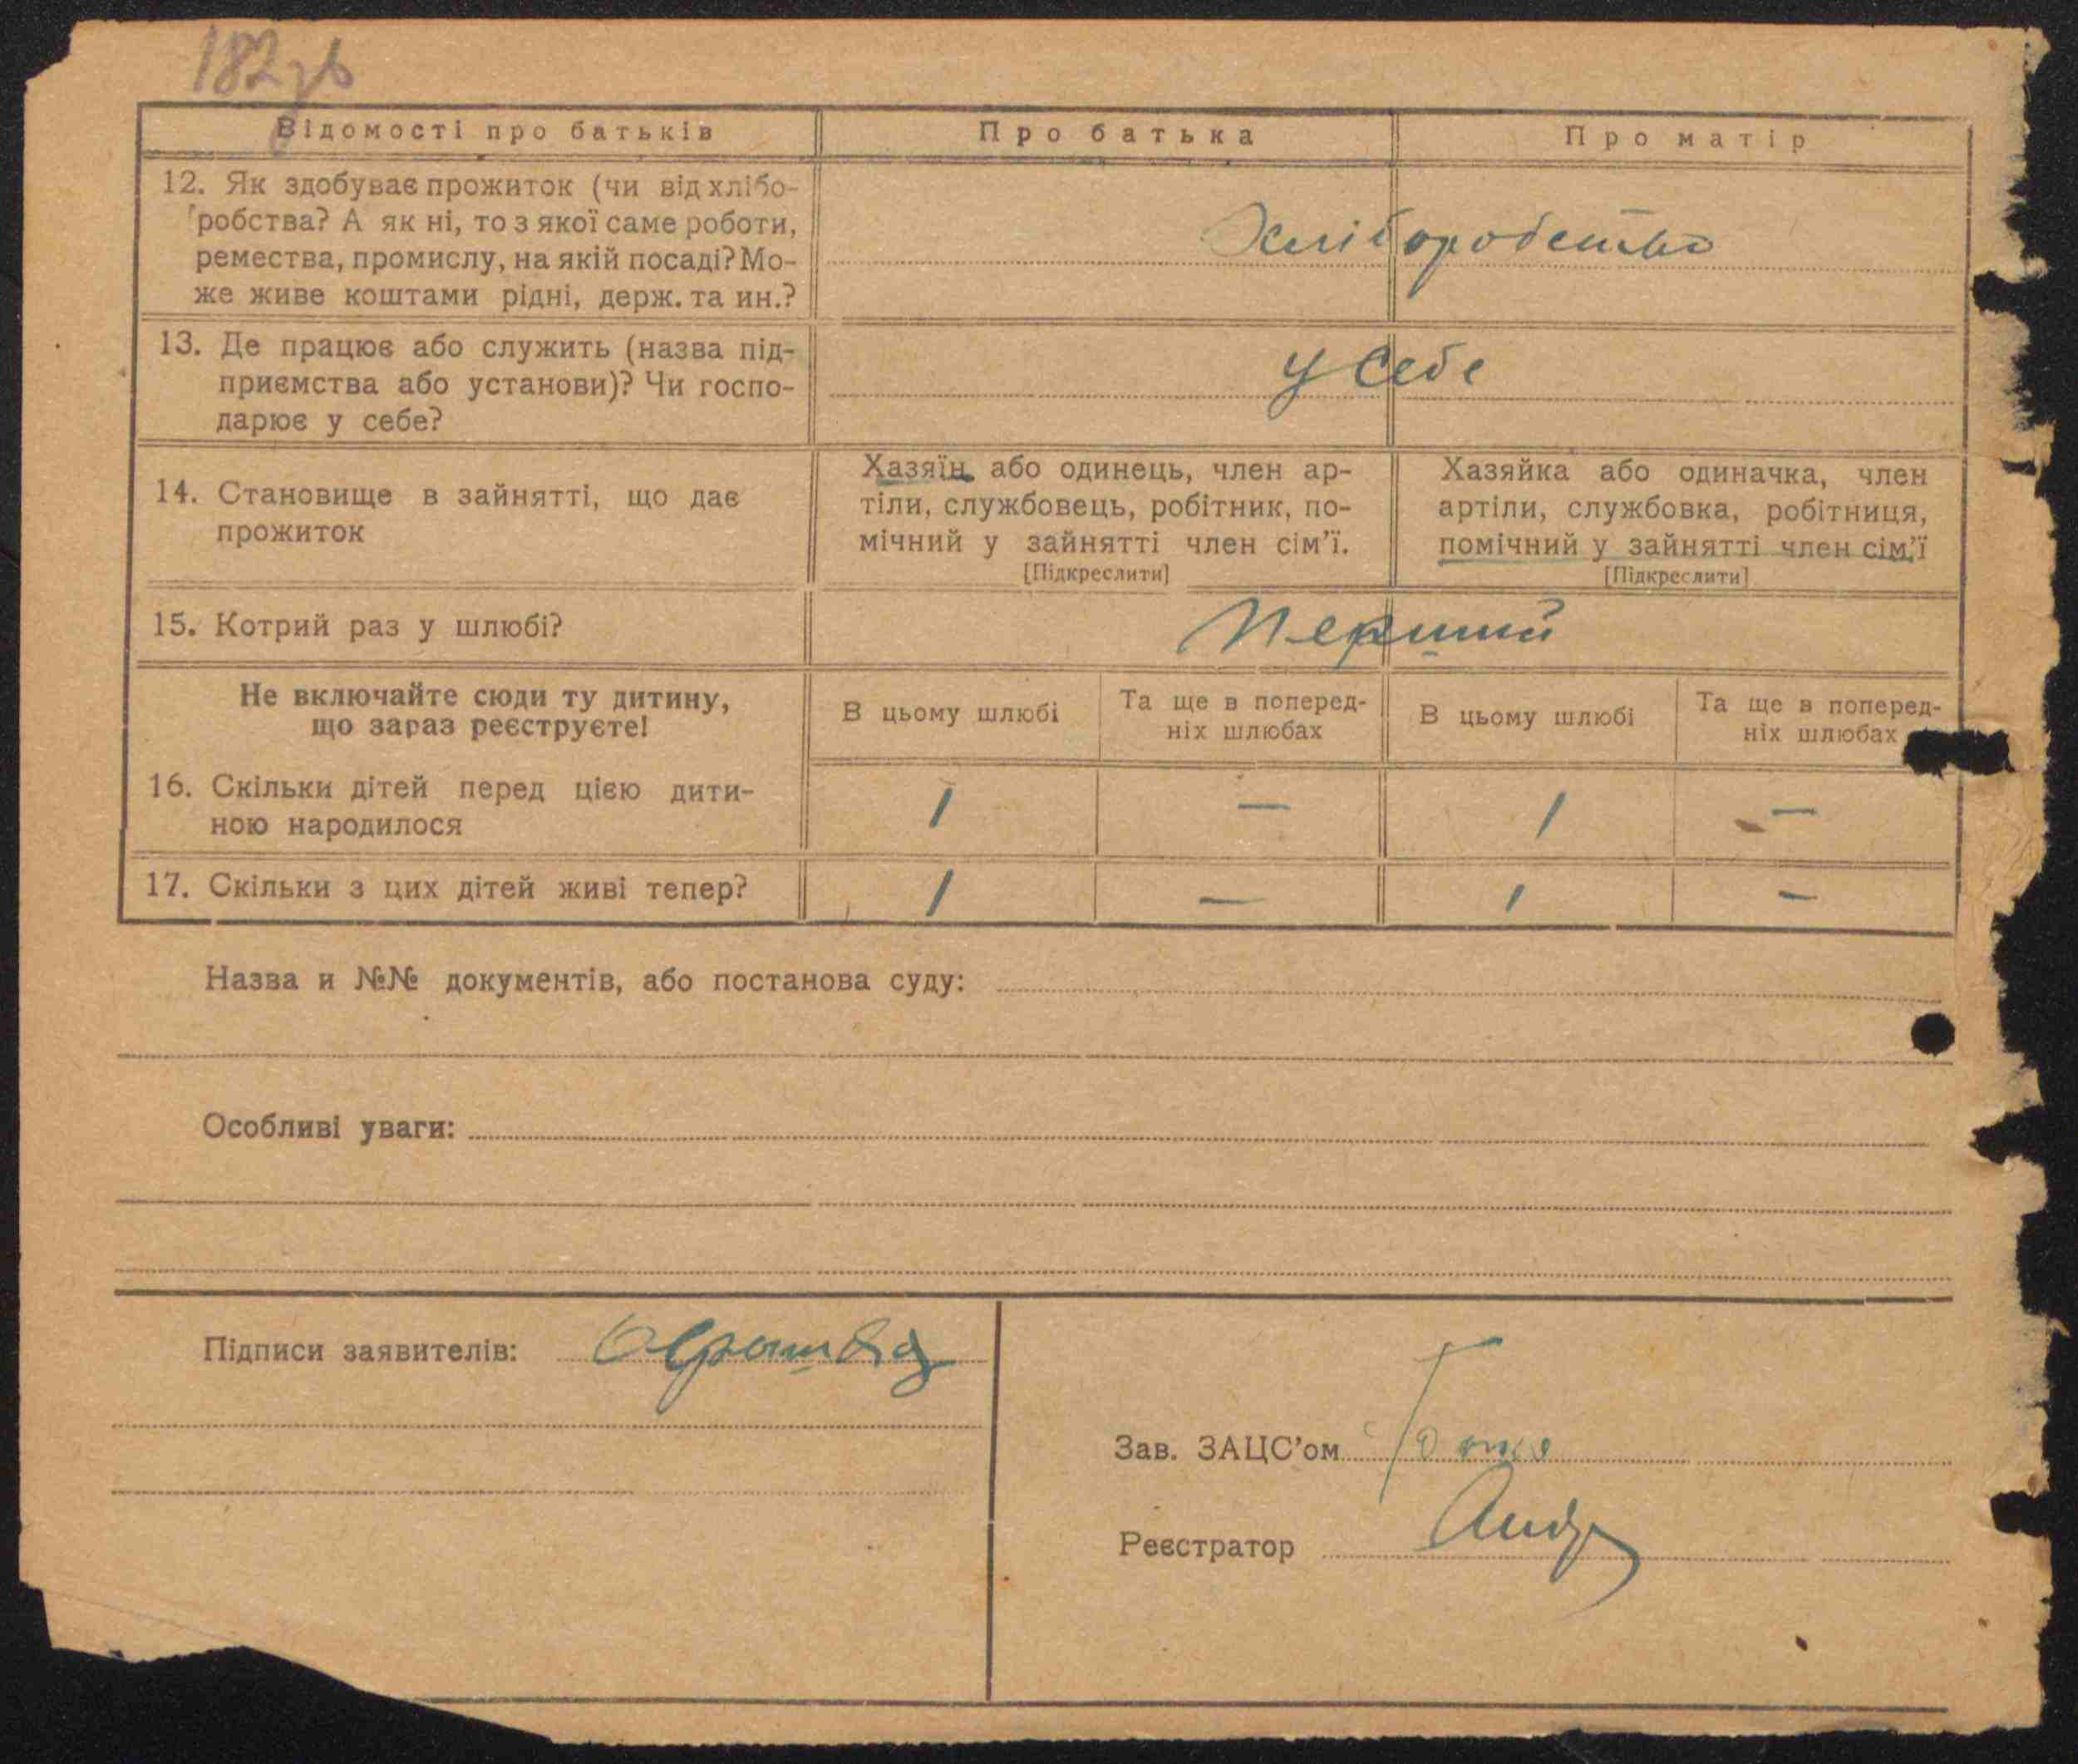 182зв
Відомості про батьків Про батька Про матір
12. Як здобуває прожиток (чи від хлібо-
робства? А як ні, то з якої саме роботи,
ремества, промислу, на якій посаді? Мо-
же живе коштами рідні, держ. та ин.?
Хліборобство
13. Де працює або служить (назва під-
приємства або установи)? Чи госпо-
дарює у себе?
у себе
14. Становище в зайнятті, що дає
прожиток
Хазяїн або одинець, член ар-
тіли, службовець, робітник, по-
мічний у зайнятті член сім’ї.
[Підкреслити]
Хазяйка або одиначка, член
артіли, службовка, робітниця,
помічний у зайнятті член сім’ї
[Підкреслити]
15. Котрий раз у шлюбі?
Перший
Не включайте сюди ту дитину,
що зараз реєструєте!
В цьому шлюбі
Та ще в поперед-
ніх шлюбах
В цьому шлюбі
Та ще в поперед-
ніх шлюбах
16. Скільки дітей перед цією дити-
ною народилося
1 — 1 —
17. Скільки з цих дітей живі тепер?
1 — 1 —
Назва и №№ документів, або постанова суду:
Особливі уваги:
Підписи заявителів:
Зав. ЗАЦС’ом
Реєстратор